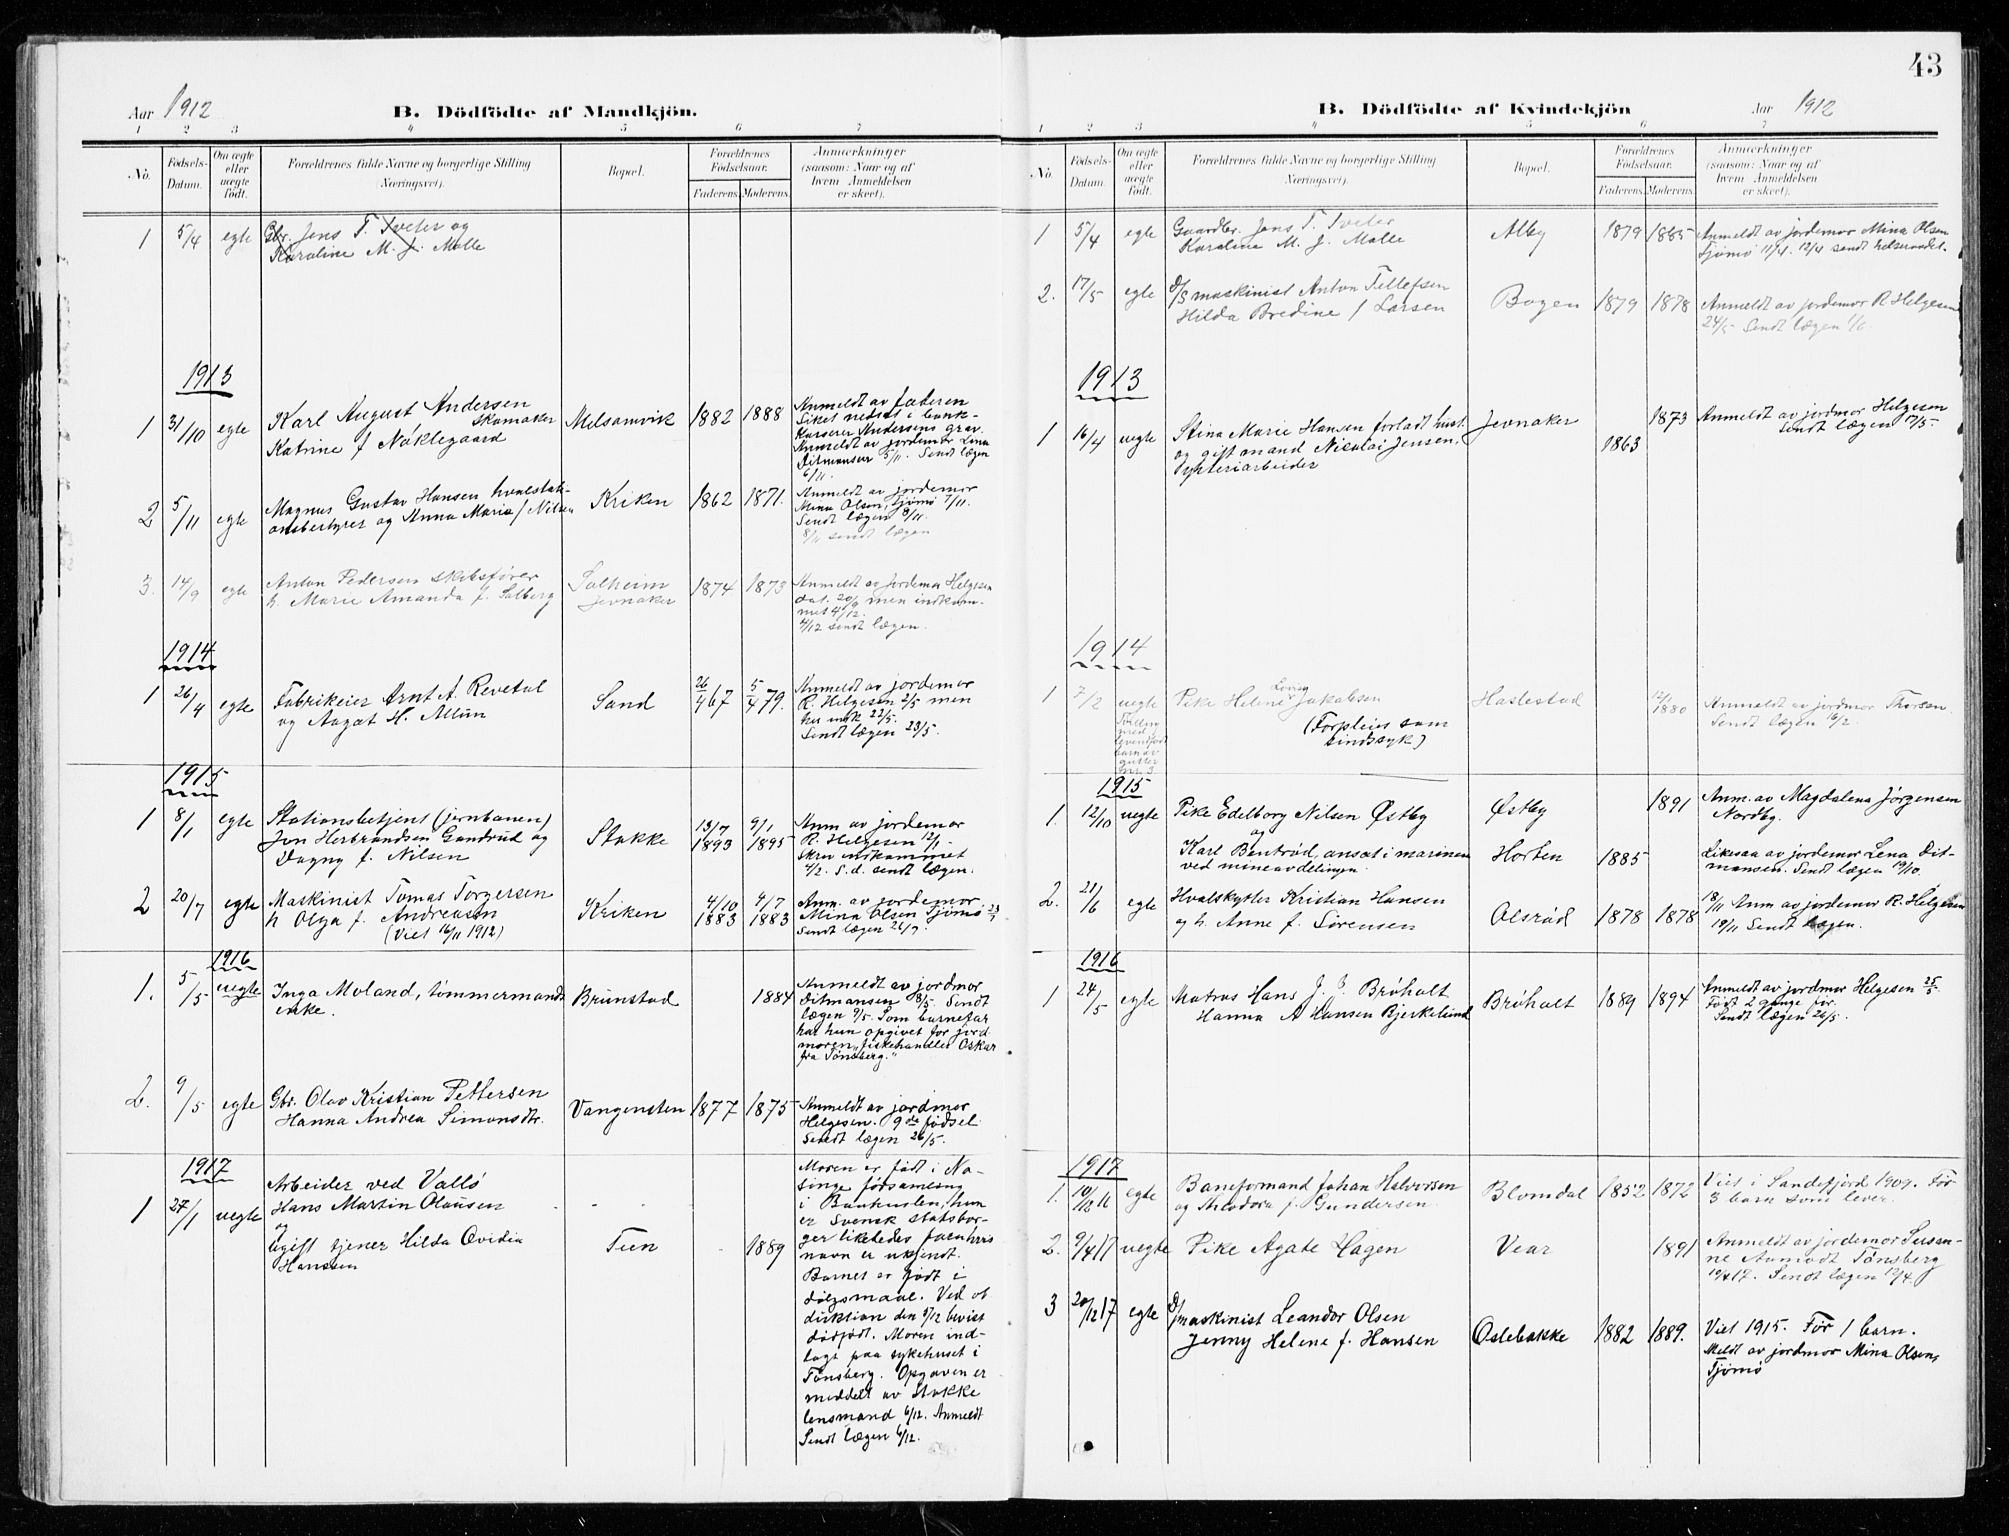 43
Aar 1912
B. Dödfödte af Mandkjön.
1 2 3 4 5 6 7
No.
Födsels-Datum.
Om ægte eller uægte födt.
Forældrenes fulde Navne og borgerlige Stilling
(Næringsvei).
Bopæl.
Forældrenes Födselsaar.
Faderens. Moderens.
Anmærkninger
(saasom: Naar og af
hvem Anmeldelsen
er skeet).
1 5/4 egte Gbr. Jens T. Tveter og
Karoline M. J. Molle
1913
1 31/10 egte Karl August Andersen
Skomaker
Katrine f Nøklegaard
Melsomvik 1882 1888
Anmeldt av faderen
Liket nedsat i bank-
kasserer Andersens grav.
Anmeldt av jordemor Lina
Ditmansen 5/11. Sendt lægen
6/11.
2 5/11 egte Magnus Gustav Hansen hvalstati-
onsbestyrer og Anna Marie f Nilsen
Kriken 1862 1871.
Anmeldt av jordemor
Mina Olsen, Tjømø 7/11.
Sendt lægen 8/11.
8/11 sendt lægen
3. 14/9 egte Anton Pedersen skibsfører
h. Marie Amanda f. Solberg
Solheim
Jevnaker
1874 1873
Anmeldt av jordemor Helgesen
dat. 20/9 men indkom-
met 4/12.
4/12 sendt lægen.
1914
1 26/4 egte Fabrikeier Arnt A. Revetal
og Aagot H. Allum
Sand 26/4 67 5/4 79.
Anmeldt av jordemor
R. Helgesen 2/5 men
her indk 22/5.
Sendt lægen 23/5.
1915
1 8/1 egte Stationsbetjent (jernbanen)
Jon Herbrandsen Gandrud og
Dagny f. Nilsen
Stokke 13/7 1893 9/1 1895
Anm av jordemor
R. Helgesen 12/1
skrev indkommet
4/2. S.d. sendt lægen.
2 20/7 egte Maskinist Tomas Torgersen
h Olga f. Andreasen
(Viet 16/11 1912)
Kriken 4/10 1883 4/7 1883
Anm. av jordemor
Mina Olsen Tjømø 23/7
Sendt lægen 26/7.
1916
1. 5/5 uegte Inga Moland, tømmermands
enke.
Brunstad 1884
Anmeldt av jordmor
Ditmansen 8/5. Sendt
lægen 9/5. Som barnefar
har hun opgivet for jord
moren „fiskehandler Oskar
fra Tønsberg."
2. 9/5 egte Gbr. Olav Kristian Pettersen
Hanna Andrea Simonsdtr.
Vangensten 1877 1875
Anmeldt av jordmor
Helgesen. 9de fødsel
Sendt lægen 26/5.
1917
1 27/1 uegte Arbeider ved Vallø
Hans Martin Olausen
og
ugift tjener Hilda Ovidia
Hanssen
Tuen 1889
Moren er født i Na-
singe forsamling
i Bauhuslen, hun
er svensk statsbor-
ger likeledes farn hvis
navn er ukjendt.
Barnet er født i
dølgsmaal. Ved ob
duktion den 9/12 bevist
dødfødt. Moren ind-
lagt paa sykehuset i
Tønsberg. Opgaven er
meddelt av Stokke
lensmand 6/12. Anmeldt
Sendt lægen 6/12.
B. Dödfödte af Kvindekjön
Aar 1912
1 2 3 4 5 6 7
No.
Födsels-Datum.
Om ægte eller uægte födt.
Forældrenes fulde Navne og borgerlige Stilling
(Næringsvei).
Bopæl.
Forældrenes Födselsaar.
Faderens. Moderens.
Anmærkninger
(saasom: Naar og af
hvem Anmeldelsen
er skeet).
1 5/4 egte Gaardbr. Jens T. Tveter
Karoline M. J. Molle
Alby 1879 1885
Anmeldt av jordemor Mina Olsen
Tjømø 11/4. 12/4 sendt helseraadet.
2. 17/5 egte D/S maskinist Anton Tellefsen
Hilda Bredine f Larsen
Bogen 1879 1878
Anmeldt av jordemor R. Helgesen
24/5 Sendt lægen 1/6.
1913
1 16/4 uegte Stina Marie Hansen forladt hust.
og gift mand Nicolai Jensen,
Jevnaker 1863 1873
Anmeldt av jordmor Helgesen
Sendt lægen 17/5
1914
1 7/2 uegte Pike Helene Lovise Jakobsen
(Forpleies som
sindssyk)
Tvilling
med
levendefødt
barn av
gutter
nr. 3
Haslestad 12/1 1880
Anmeldt av jordmor Thorsen
Sendt lægen 16/2.
1915
1. 12/10 uegte Pike Edelborg Nilsen Østby
og
Karl Bentrød, ansat i marinen
ved mineavdelingen.
Østby 1891
Horten 1885
Anm. av Magdalena Jørgensen
Nordby.
Likesaa av jordemor Lena Dit-
mansen. Sendt lægen 19/10.
2. 21/6 egte Hvalskytter Kristian Hansen
og h. Anne f. Sørensen
Olsrød 1878 1878
18/11 Anm av jordemor R. Helgesen
19/11 Sendt lægen.
1916
1 24/5 egte Matros Hans J. J. Brøholt
Hanna A Hansen Bjerkelund
Brøholt 1889 1894
Anmeldt av jordmor Helgesen 25/5.
Født 2 gange før.
Sendt lægen 26/5.
1917
1. 10/12 16 egte Baneformand Johan Halvorsen
og Theodora f. Gundersen.
Blomdal 1852 1872
Viet i Sandefjord 1909. Før
3 barn som lever.
2. 9/4 17 uegte Pike Agate Hagen
Vear 1891
Anmeldt av jordemor Susan-
ne Aamodt Tønsberg
10/4 17. Sendt lægen 12/4.
3 20/12 17 egte D/ maskinist Leander Olsen
Jenny Helene f. Hansen
Oslebakke 1882 1889.
Viet 1915. Før 1 barn.
Meldt av jordmor Mina Olsen,
Tjømø